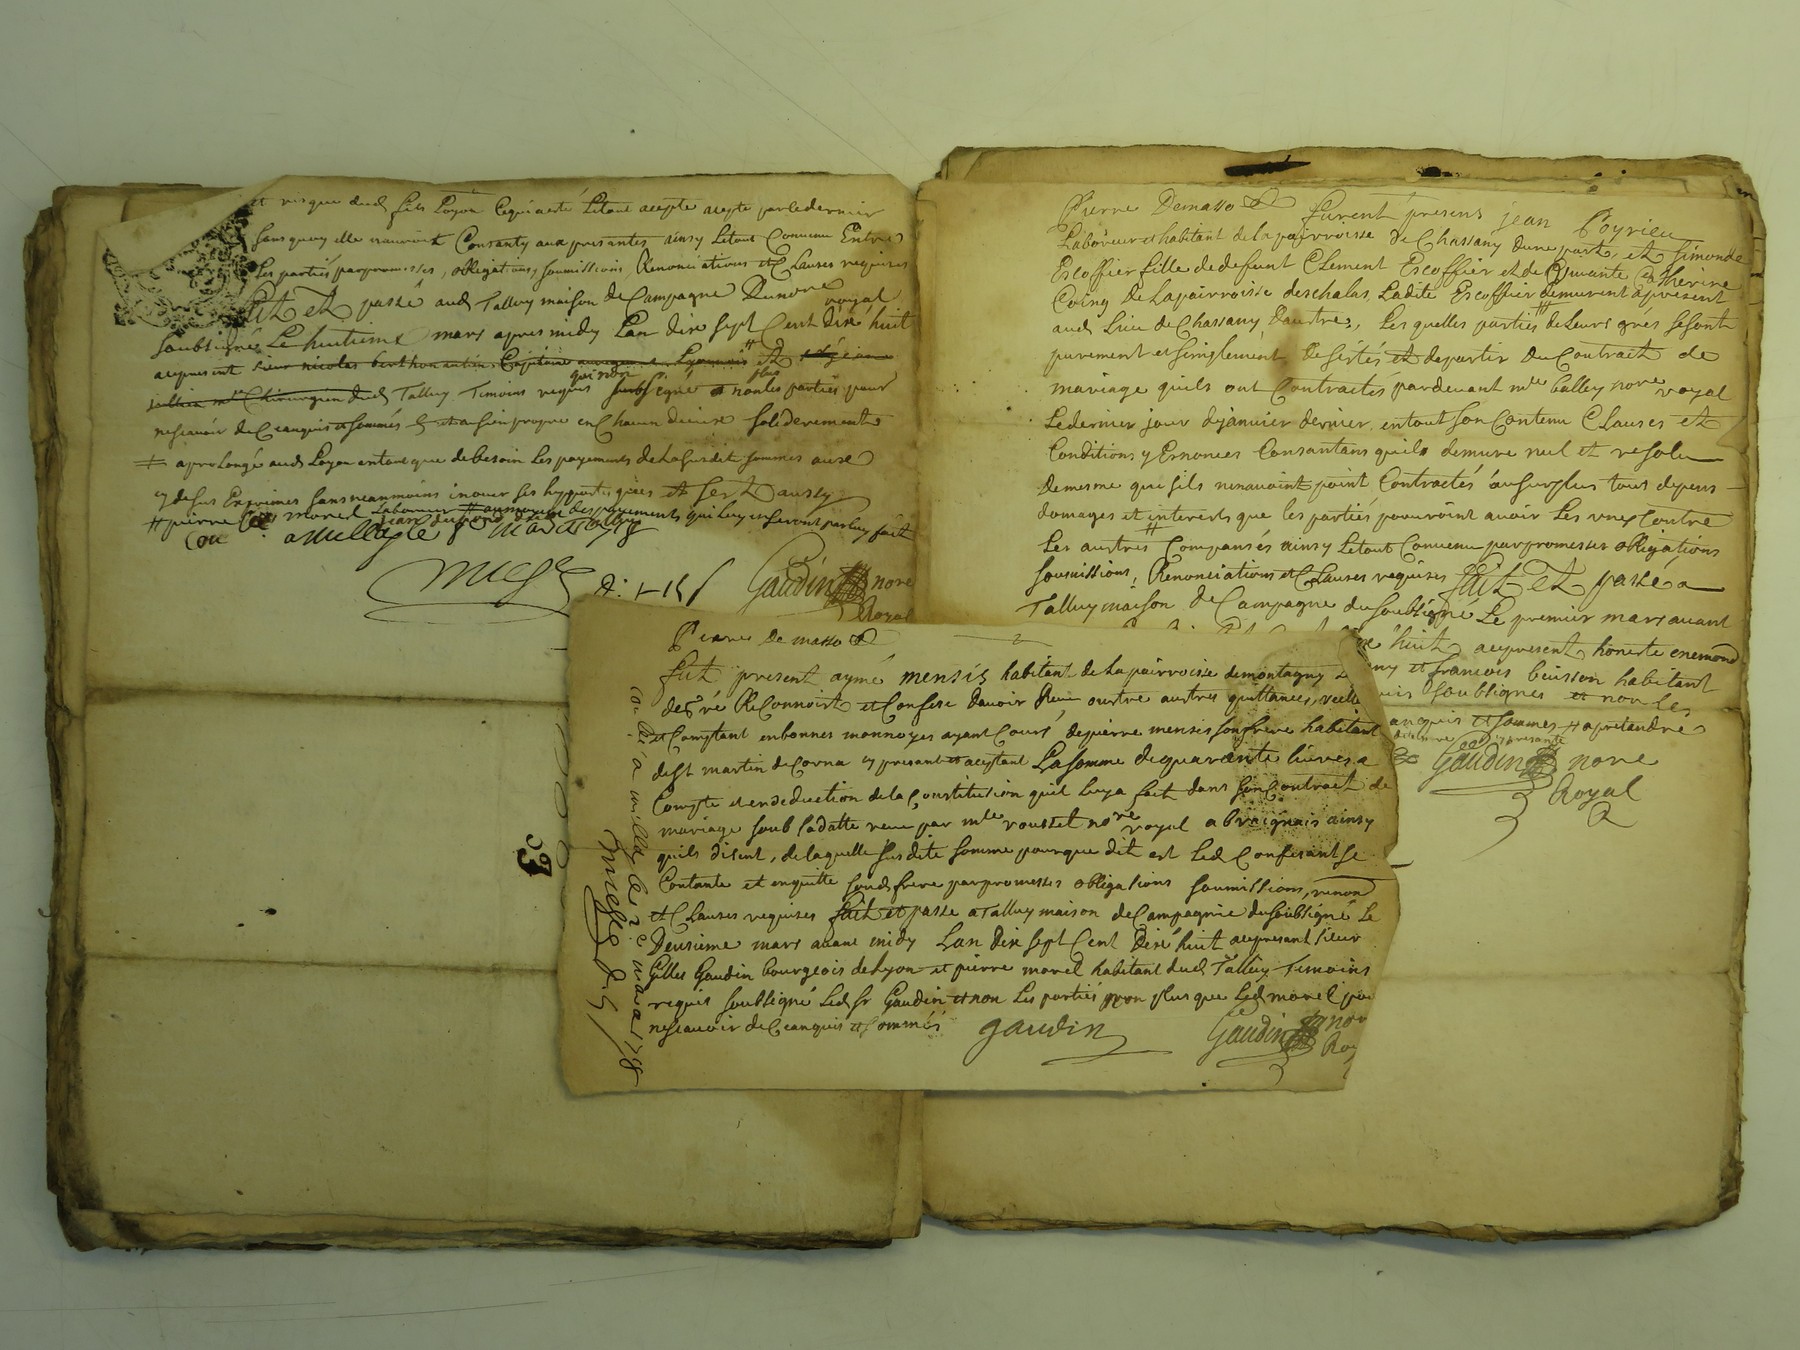 et risque dud fils Loyon Cequi a esté Letout accepté par le dernier
sans quoy elle nauroit Consanty aux presantes ainsy Letout Convenu Entre
Les partiés parpromesses, obligations, soumissions Renonciations et Clauses requises
fait et passé aud Talluy maison de Campagne Dunore royal
soubsigné Le huitieme mars apres midy Lan dix sept Cent dix huit
acepresent sieur nicolas berthon Capitaine Lyonnois et
jullien me Chirurgien dud Talluy Timoins requis qui nont soubsigné non les partiés pour
nescavoir de Ce anquis et sommés et en chacun diceux soliderement
a prolongé aud Loyon entant que de besoin Les payements de la susdite somme aux
cy desus Exprimés sans neanmoins inover ses hypportiques et sert aussy
pierre morel Laboureur au moyen des payements qui luy en seront par luy fait
Con. a millery le 8e mars 1718
Gaudin nore
Royal
Pierre Demasso
furent présens jean Poyrieu
Laboureur et habitant de la pairroisse de Chassany dune part, et simonde
Escoffier fille de defunt Clement Escoffier et de vivante Catherine
Coing de la pairroisse deschalas Ladite Escoffier demurent apresent
aud Lieu de Chassany Dautre, Les quelles partiés de Leurs grés se sont
purement et simplement desistés et departir du Contract de
mariage quils ont Contractés pardevant me balley nore royal
Le dernier jour de janvier dernier, en tout son Contenu Clauses et
Conditions y Ennoncés Consantans quils demure nul et resolu
de mesme qui sils nenavoint point Contractés au surplus tous depens
domages et interests que les partiés pouuroint avoir Les unes Contre
Les austres Compansés ainsy Letout Convenu parpromesses obligations
soumissions, Renonciations et Clauses requises fait et passé a
Talluy maison de Campagne du soubsigné Le premier mars avant
huit acepresent honeste enemond
et francois buisson habitant
soubsignés et non les
anquis et sommes apretendre
Gaudin nore
Royal
Pierre de masso
fut present aymé mensis habitant de la pairroisse de montagny
de gré Reconnoist et Confesse davoir Reçu oustre austres quittances, reelle
et Comptant en bonnes monnoyes ayant Cours de pierre mensis son frere habitant
de st martin de Corna cy presant et aceptant La somme de quarente livres a
Compte et en deduction de la Constitution quil luy a fait dans son Contract de
mariage soub sa datte receu par me roustet nore royal a Braignais ainsy
quils disent, de laquelle susdite somme pour que dit est Led Confessant se
Contante et en quitte soud frere parpromesses obligations soumissions, renon
et Clauses requises fait et passé a Talluy maison de Campagnie du soubsigné Le
Deusieme mars avant midy Lan dix sept Cent Dix huit acepresant sieur
Gilles Gaudin bourgeois de Lyon et pierre morel habitant dud Talluy Timoins
requis soubsigné Led sr Gaudin et non Les partiés non plus que Led morel pour
nescavoir de Ce anquis et sommés
gaudin
Gaudin nor
Roy
a millery le 2e mars 1718